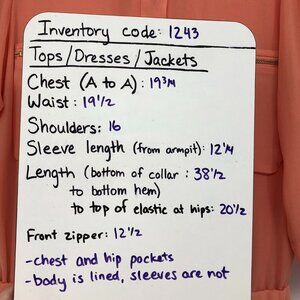 Inventory code: 1243
Tops/Dresses/Jackets
Chest (A to A): 19 3/4
Waist: 19 1/2
Shoulders: 16
Sleeve length (from armpit): 12 1/4
Length (bottom of collar: 38 1/2
to bottom hem)
to top of elastic at hips: 20 1/2
Front zipper: 12 1/2
-chest and hip pockets
-body is lined, sleeves are not